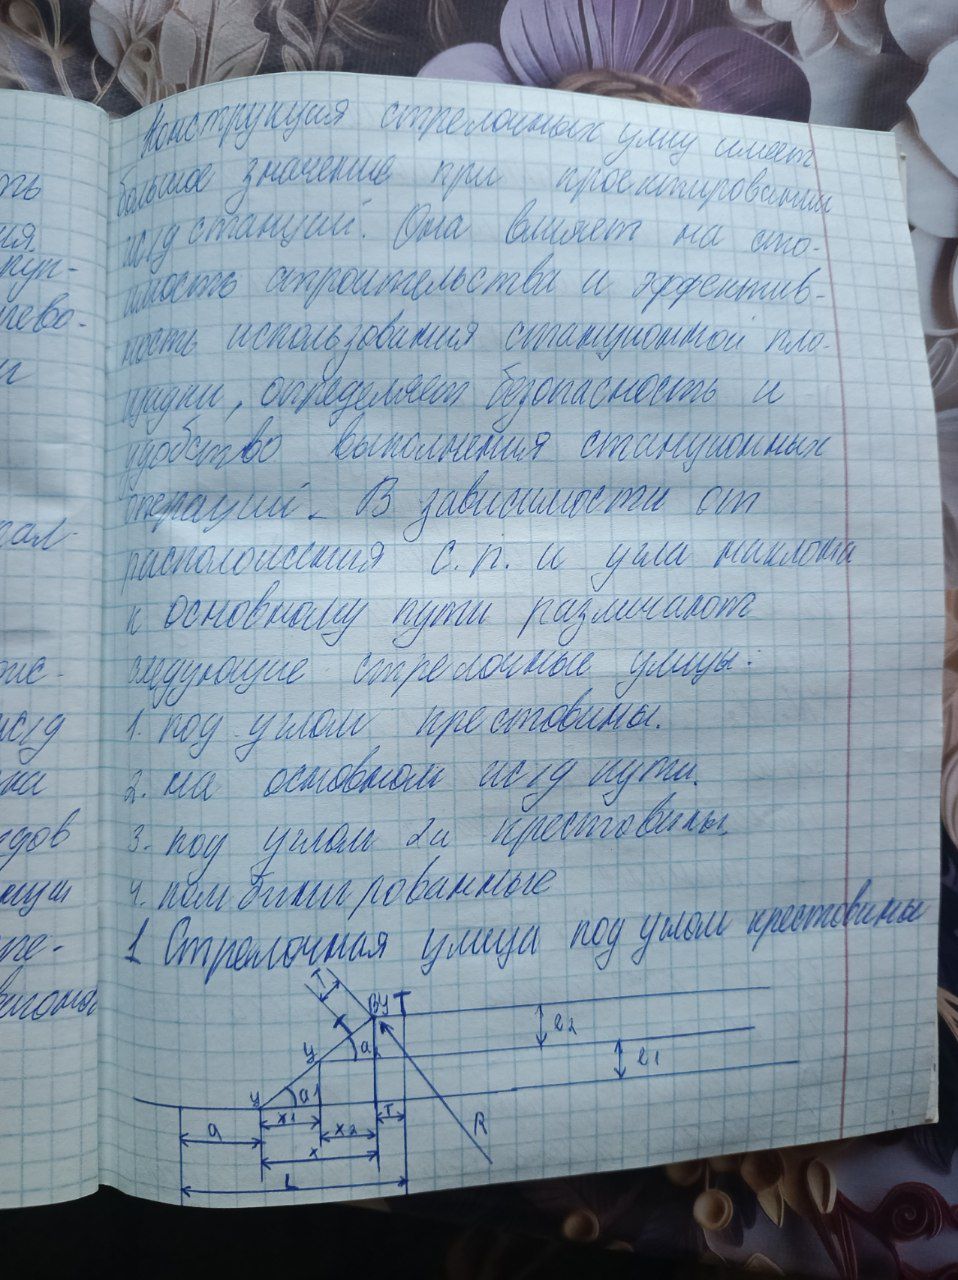 ть
ия.
рал-
ж/д
на
дов
Конструкция стрелочных улиц имеет
большое значение при проектировании
ж/д станций. Она влияет на сто-
имость строительства и эффектив-
ность использования станционной пло-
щадки, определяет безопасность и
удобство выполнения станционных
операций. В зависимости от
расположения с.п. и угла наклона
к основному пути различают
следующие стрелочные улицы:
1. под углом крестовины.
2. на основном ж/д пути.
3. под углом 2й крестовины
4. комбинированные
1 Стрелочная улица под углом крестовины
T
ВУ T
У a2 e2
У a1 e1
x1 T
a x2 R
x
L